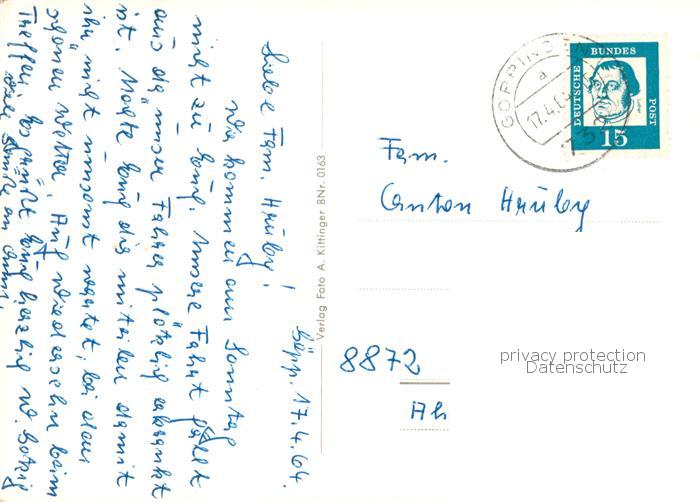 Göpp. 17.4.64.
Liebe Fam. Hruby!
Wir kommen am Sonntag
nicht zu Euch. Unsere Fahrt fällt
aus da unser Fahrer plötzlich erkrankt
ist. Möchte Euch das mitteilen damit
ihr nicht umsonst wartet, bei dem
schönen Wetter. Auf Wiedersehn beim
Treffen. Es grüßt Euch herzlich
Verlag Foto A. Kittinger BNr. 0163
GÖPPINGEN
a
17.4.64
DEUTSCHE BUNDES POST
15
Fam.
Anton Hruby
8872
privacy protection
Datenschutz